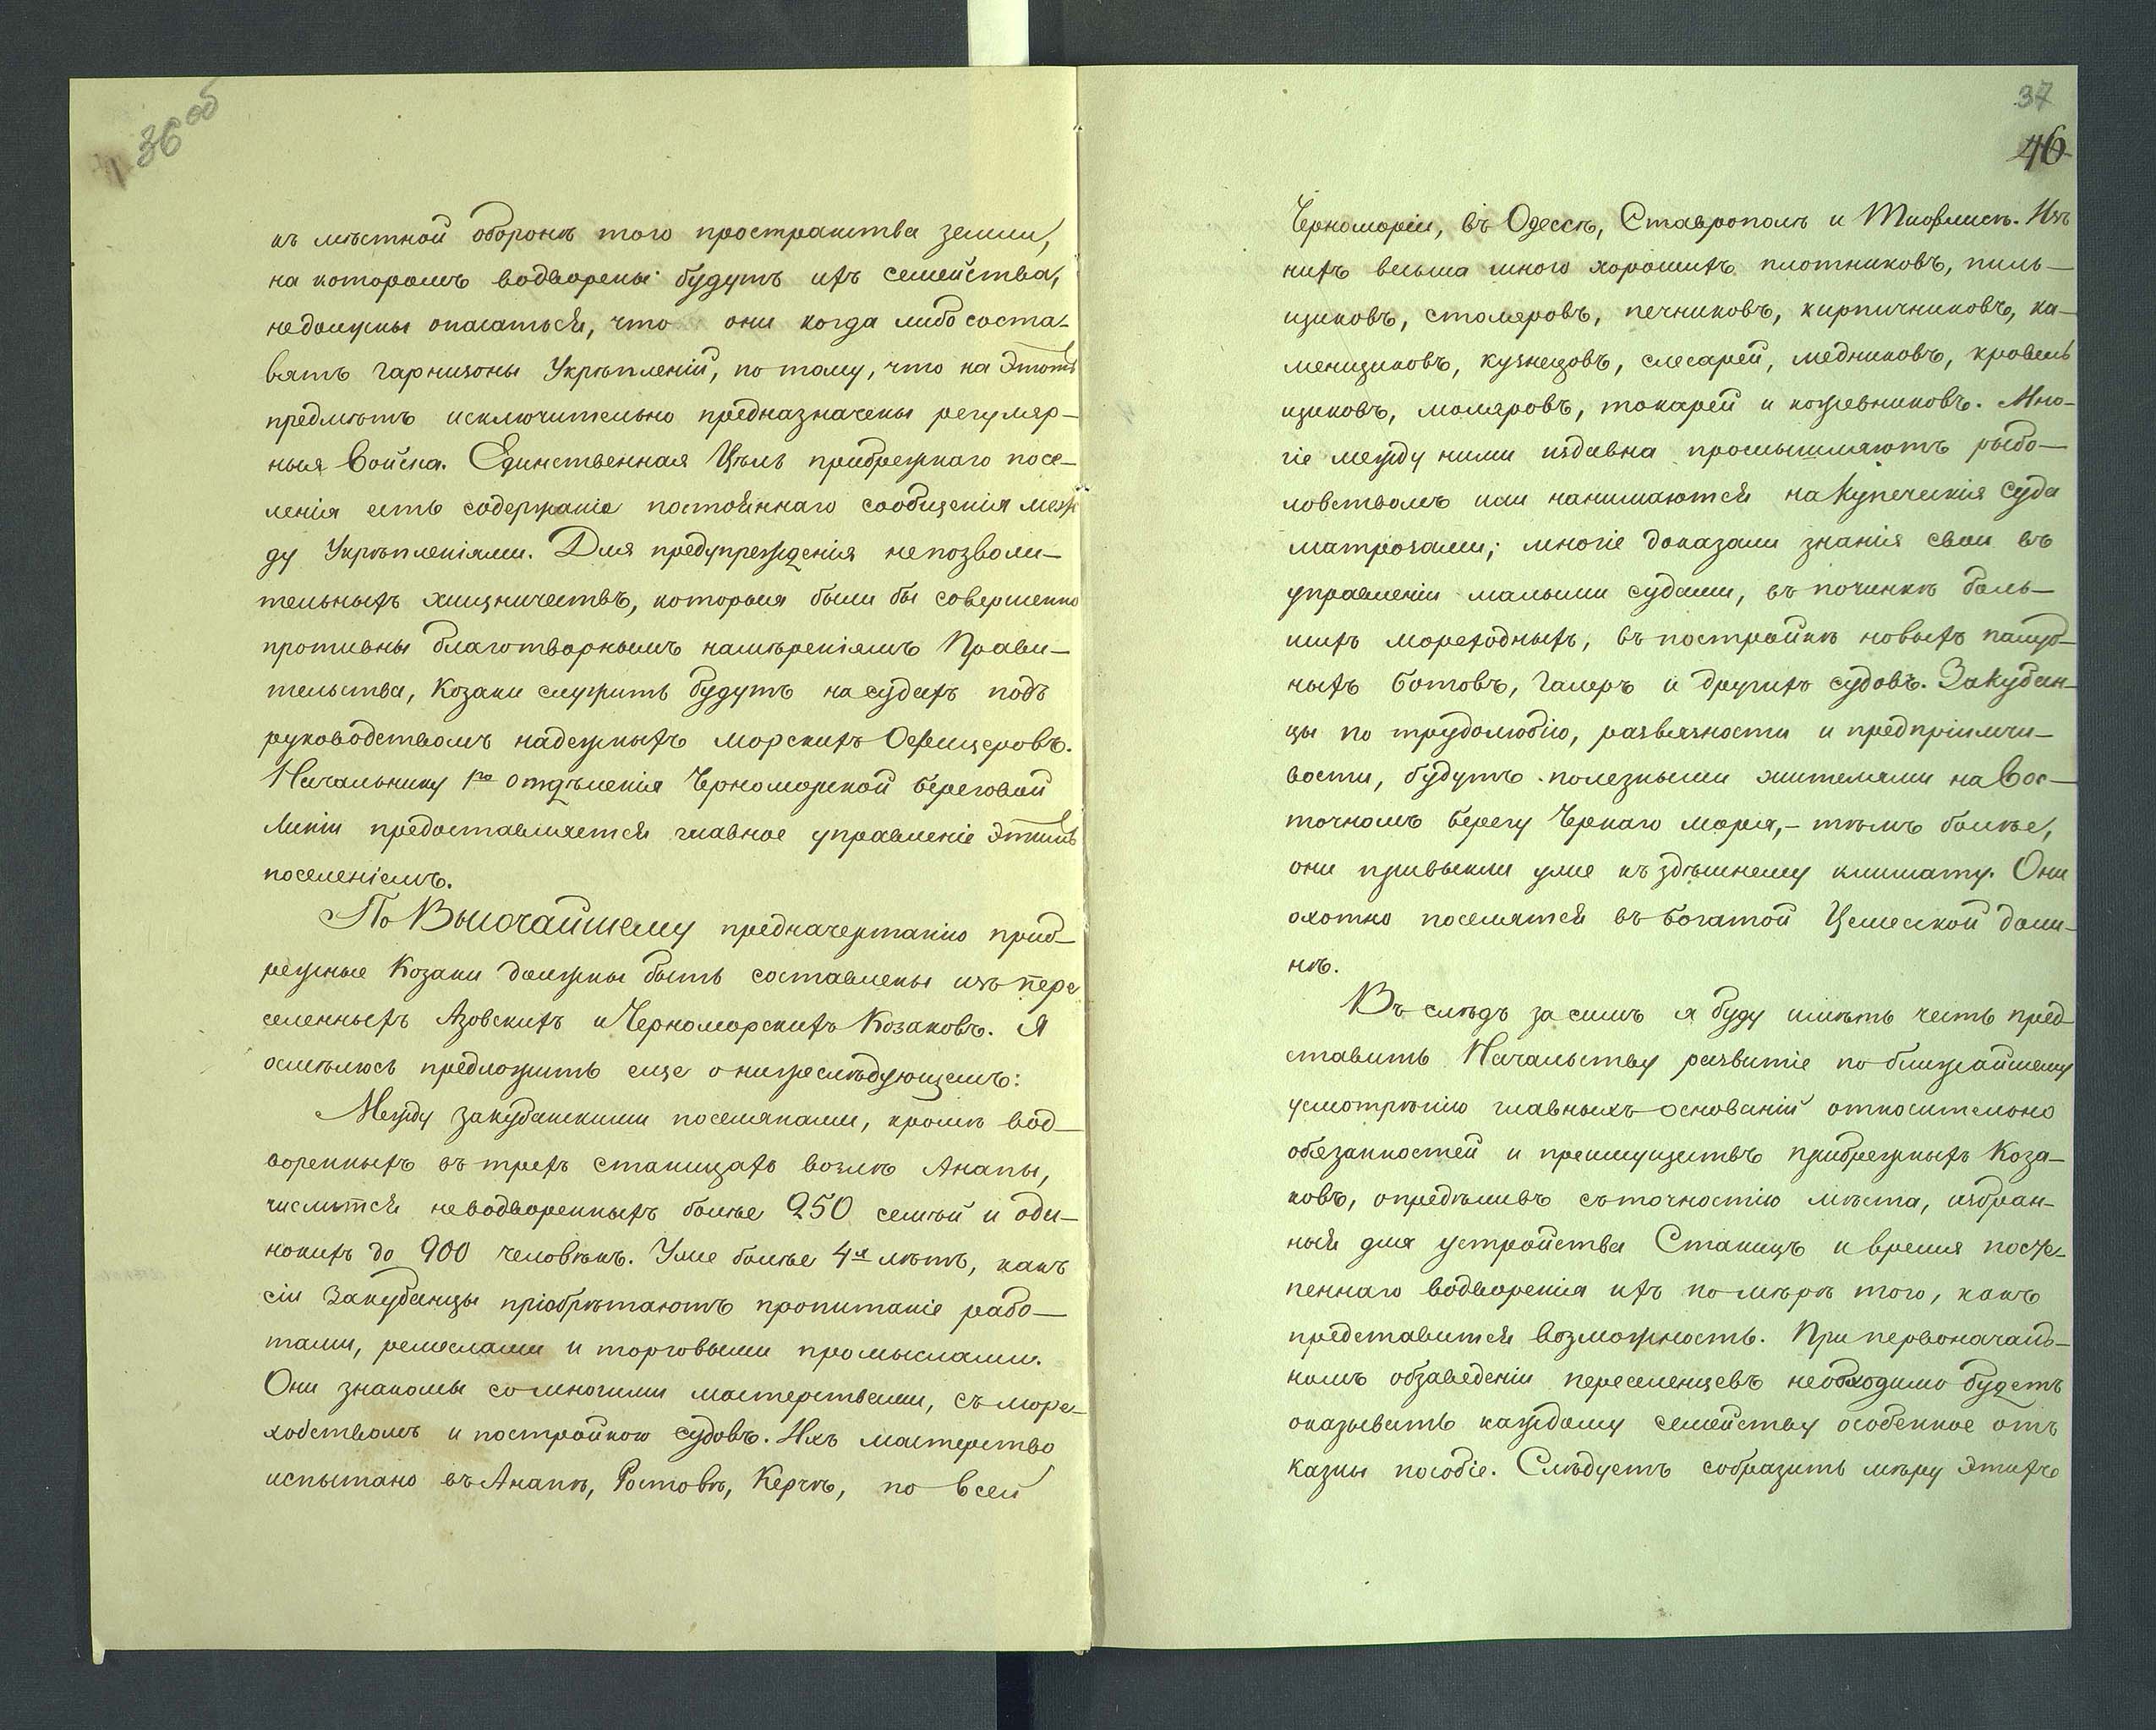 36 об
къ мѣстной оборонѣ того пространства земли,
на которомъ водворены будутъ ихъ семейства,
недолжны опасаться, что они когда либо соста-
вятъ гарнизоны Укрѣпленій, по тому, что на этотъ
предмѣтъ исключительно предназначены регуляр-
ныя Войска. Единственная Цѣль прибрежнаго посе-
ленія есть содержаніе постояннаго сообщенія меж
ду Укрѣпленіями. Для предупрежденія непозволи-
тельныхъ хищничествъ, которыя были бы совершенно
противны благотворнымъ намѣреніямъ Прави-
тельства, Козаки служить будутъ на судахъ подъ
руководствомъ надежныхъ морскихъ Офицеровъ.
Начальнику 1го отдѣленія Черноморской береговой
линіи предоставляется главное управленіе этимъ
поселеніемъ.
По Высочайшему предначертанію приб-
режные Козаки должны быть составлены изъ пере
селенныхъ Азовскихъ и Черноморскихъ Козаковъ. Я
осмѣлюсь предложить еще о нижеслѣдующемъ:
Между закубанскими поселянами, кромѣ вод-
воренныхъ въ трехъ станицахъ возлѣ Анапы,
числится неводворенныхъ болѣе 250 семѣй и оди-
нокихъ до 900 человѣкъ. Уже болѣе 4х лѣтъ, какъ
сіи Закубанцы пріобрѣтаютъ пропитаніе рабо-
тами, ремеслами и торговыми промыслами.
Они знакомы со многими мастерствами, съ море-
ходствомъ и постройкою судовъ. Ихъ мастерство
испытано въ Анапѣ, Ростовѣ, Керчѣ, по всей
37
46
Черноморіи, въ Одессѣ, Ставрополѣ и Тифлисѣ. Изъ
нихъ весьма много хорошихъ плотниковъ, пиль-
щиковъ, столяровъ, печниковъ, кирпичниковъ, ка-
менщиковъ, кузнецовъ, слесарей, медниковъ, кровель
щиковъ, моляровъ, токарей и кожевниковъ. Мно-
гіе между ними издавна промышляютъ рыбо-
ловствомъ или нанимаются на Купеческія суда
матрозами; многіе доказали знанія свои въ
управленіи малыми судами, въ починкѣ боль-
шихъ мореходныхъ, въ постройкѣ новыхъ палуб-
ныхъ ботовъ, галеръ и другихъ судовъ. Закубан-
цы по трудолюбію, развязности и предпріимчи-
вости, будутъ полезными жителями на Вос-
точномъ берегу Чернаго моря,- тѣмъ болѣе,
они привыкли уже къ здѣшнему климату. Они
охотно поселятся въ богатой Цемеской доли-
нѣ.
Въ слѣдъ за симъ я буду имѣть честь пред-
ставить Начальству развитіе по ближайшему
усмотрѣнію главныхъ основаній относительно
обязанностей и преимуществъ прибрежныхъ Коза-
ковъ, опредѣливъ съ точностію мѣста, избран-
ныя для устройства Станицъ и время посте-
пеннаго водворенія ихъ по мѣрѣ того, какъ
представится возможность. При первоначаль-
номъ обзаведеніи переселенцевъ необходимо будетъ
оказывать каждому семейству особенное отъ
казны пособіе. Слѣдуетъ собразить мѣру этихъ